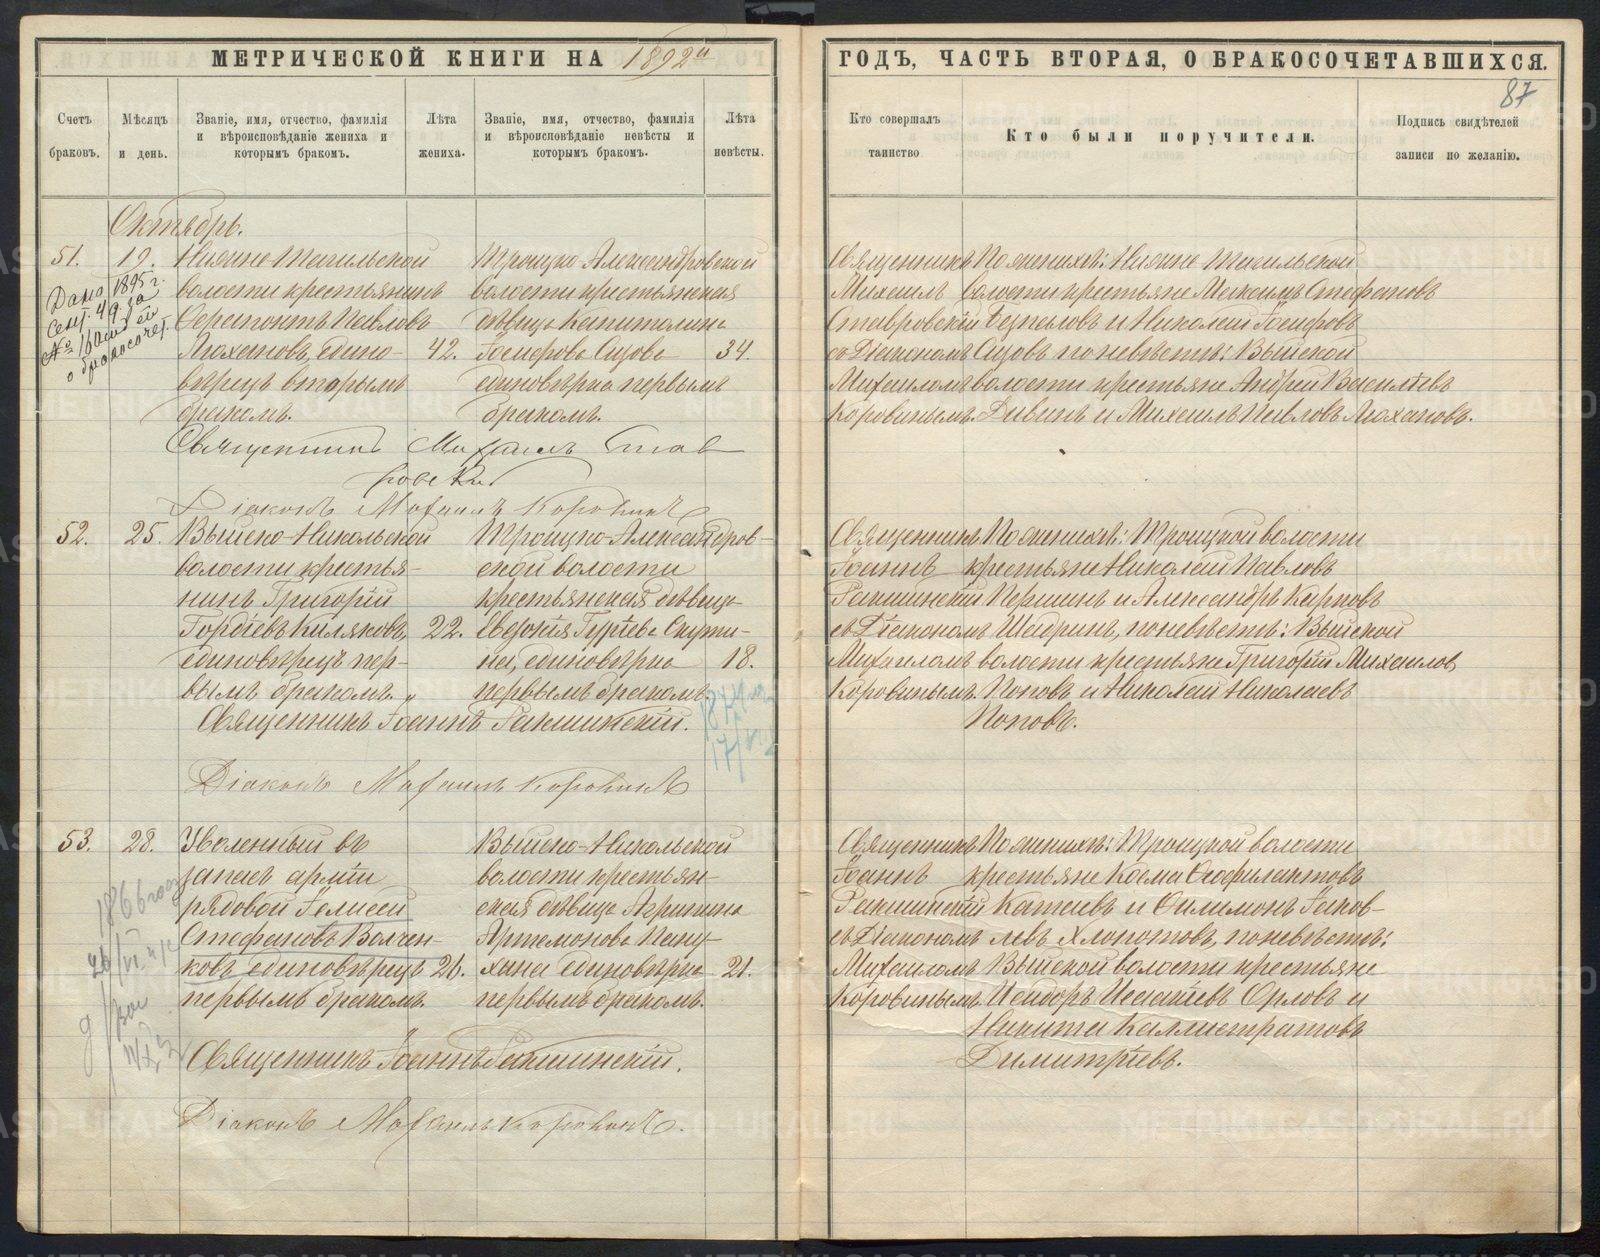 МЕТРИЧЕСКОЙ КНИГИ НА 1892й
ГОДЪ, ЧАСТЬ ВТОРАЯ, О БРАКОСОЧЕТАВШИХСЯ.
87
Счетъ браковъ.
Мѣсяцъ и день.
Званіе, имя, отчество, фамилія
и вѣроисповѣданіе жениха и
которымъ бракомъ.
Лѣта жениха.
Званіе, имя, отчество, фамилія
и вѣроисповѣданіе невѣсты и
которымъ бракомъ.
Лѣта невѣсты.
Кто совершалъ
таинство
Кто были поручители.
Подпись свидѣтелей
записи по желанію.
Октябрь.
51.
19.
Дано 1895 г.
Сент. 49 за
№
о бракосочет.
Нижне Тагильской
волости крестьянинъ
Серапонтъ Павловъ
Ляхановъ, едино-
вѣрецъ вторымъ
бракомъ.
42.
Троицко Александровской
волости крестьянская
дѣвица Капитолина
Іосифова Сизова
единовѣрка первымъ
бракомъ.
34.
Священникъ
Михаилъ
Ставровскій
съ Діакономъ
Михаиломъ
Коровинымъ.
По женихѣ: Нижне Тагильской
волости крестьяне Максимъ Стефановъ
Безпаловъ и Николай Іосифовъ
Сизовъ по невѣстѣ: Выйской
волости крестьяне Андрей Васильевъ
Дивинъ и Михаилъ Павловъ Ляхановъ.
Священникъ Михаилъ Став
ровскій
Діаконъ Михаилъ Коровинъ
52.
25.
Выйско-Никольской
волости крестья-
нинъ Григорій
Гордѣевъ Киляковъ,
единовѣрецъ пер-
вымъ бракомъ.
22.
Троицко-Александров-
ской волости
крестьянская дѣвица
Евдокія Гурiева Скути-
на, единовѣрка
первымъ бракомъ.
18.
Священникъ
Іоаннъ
Ракшинскій
съ Діакономъ
Михаиломъ
Коровинымъ.
По женихѣ: Троицкой волости
крестьяне Николай Павловъ
Першинъ и Александръ Карповъ
Шадринъ, по невѣстѣ: Выйской
волости крестьяне Григорій Михаиловъ
Поповъ и Николай Николаевъ
Поповъ.
Священникъ Іоаннъ Ракшинскій.
Діаконъ Михаилъ Коровинъ
53.
28.
1866 года
Уволенный въ
запасъ арміи
рядовой Елисей
Стефановъ Волчен-
ковъ единовѣрецъ
первымъ бракомъ.
26.
Выйско-Никольской
волости крестьян-
ская дѣвица Агрипина
Артемонова Пану-
хина единовѣрка
первымъ бракомъ.
21.
Священникъ
Іоаннъ
Ракшинскій
съ Діакономъ
Михаиломъ
Коровинымъ
По женихѣ: Троицкой волости
крестьяне Косма Феофилактовъ
Катаевъ и Филимонъ Іаков-
левъ Хлопотовъ, по невѣстѣ:
Выйской волости крестьяне
Исидоръ Исакіевъ Орловъ и
Никита Каллистратовъ
Димитріевъ.
Священникъ Іоаннъ Ракшинскій.
Діаконъ Михаилъ Коровинъ.